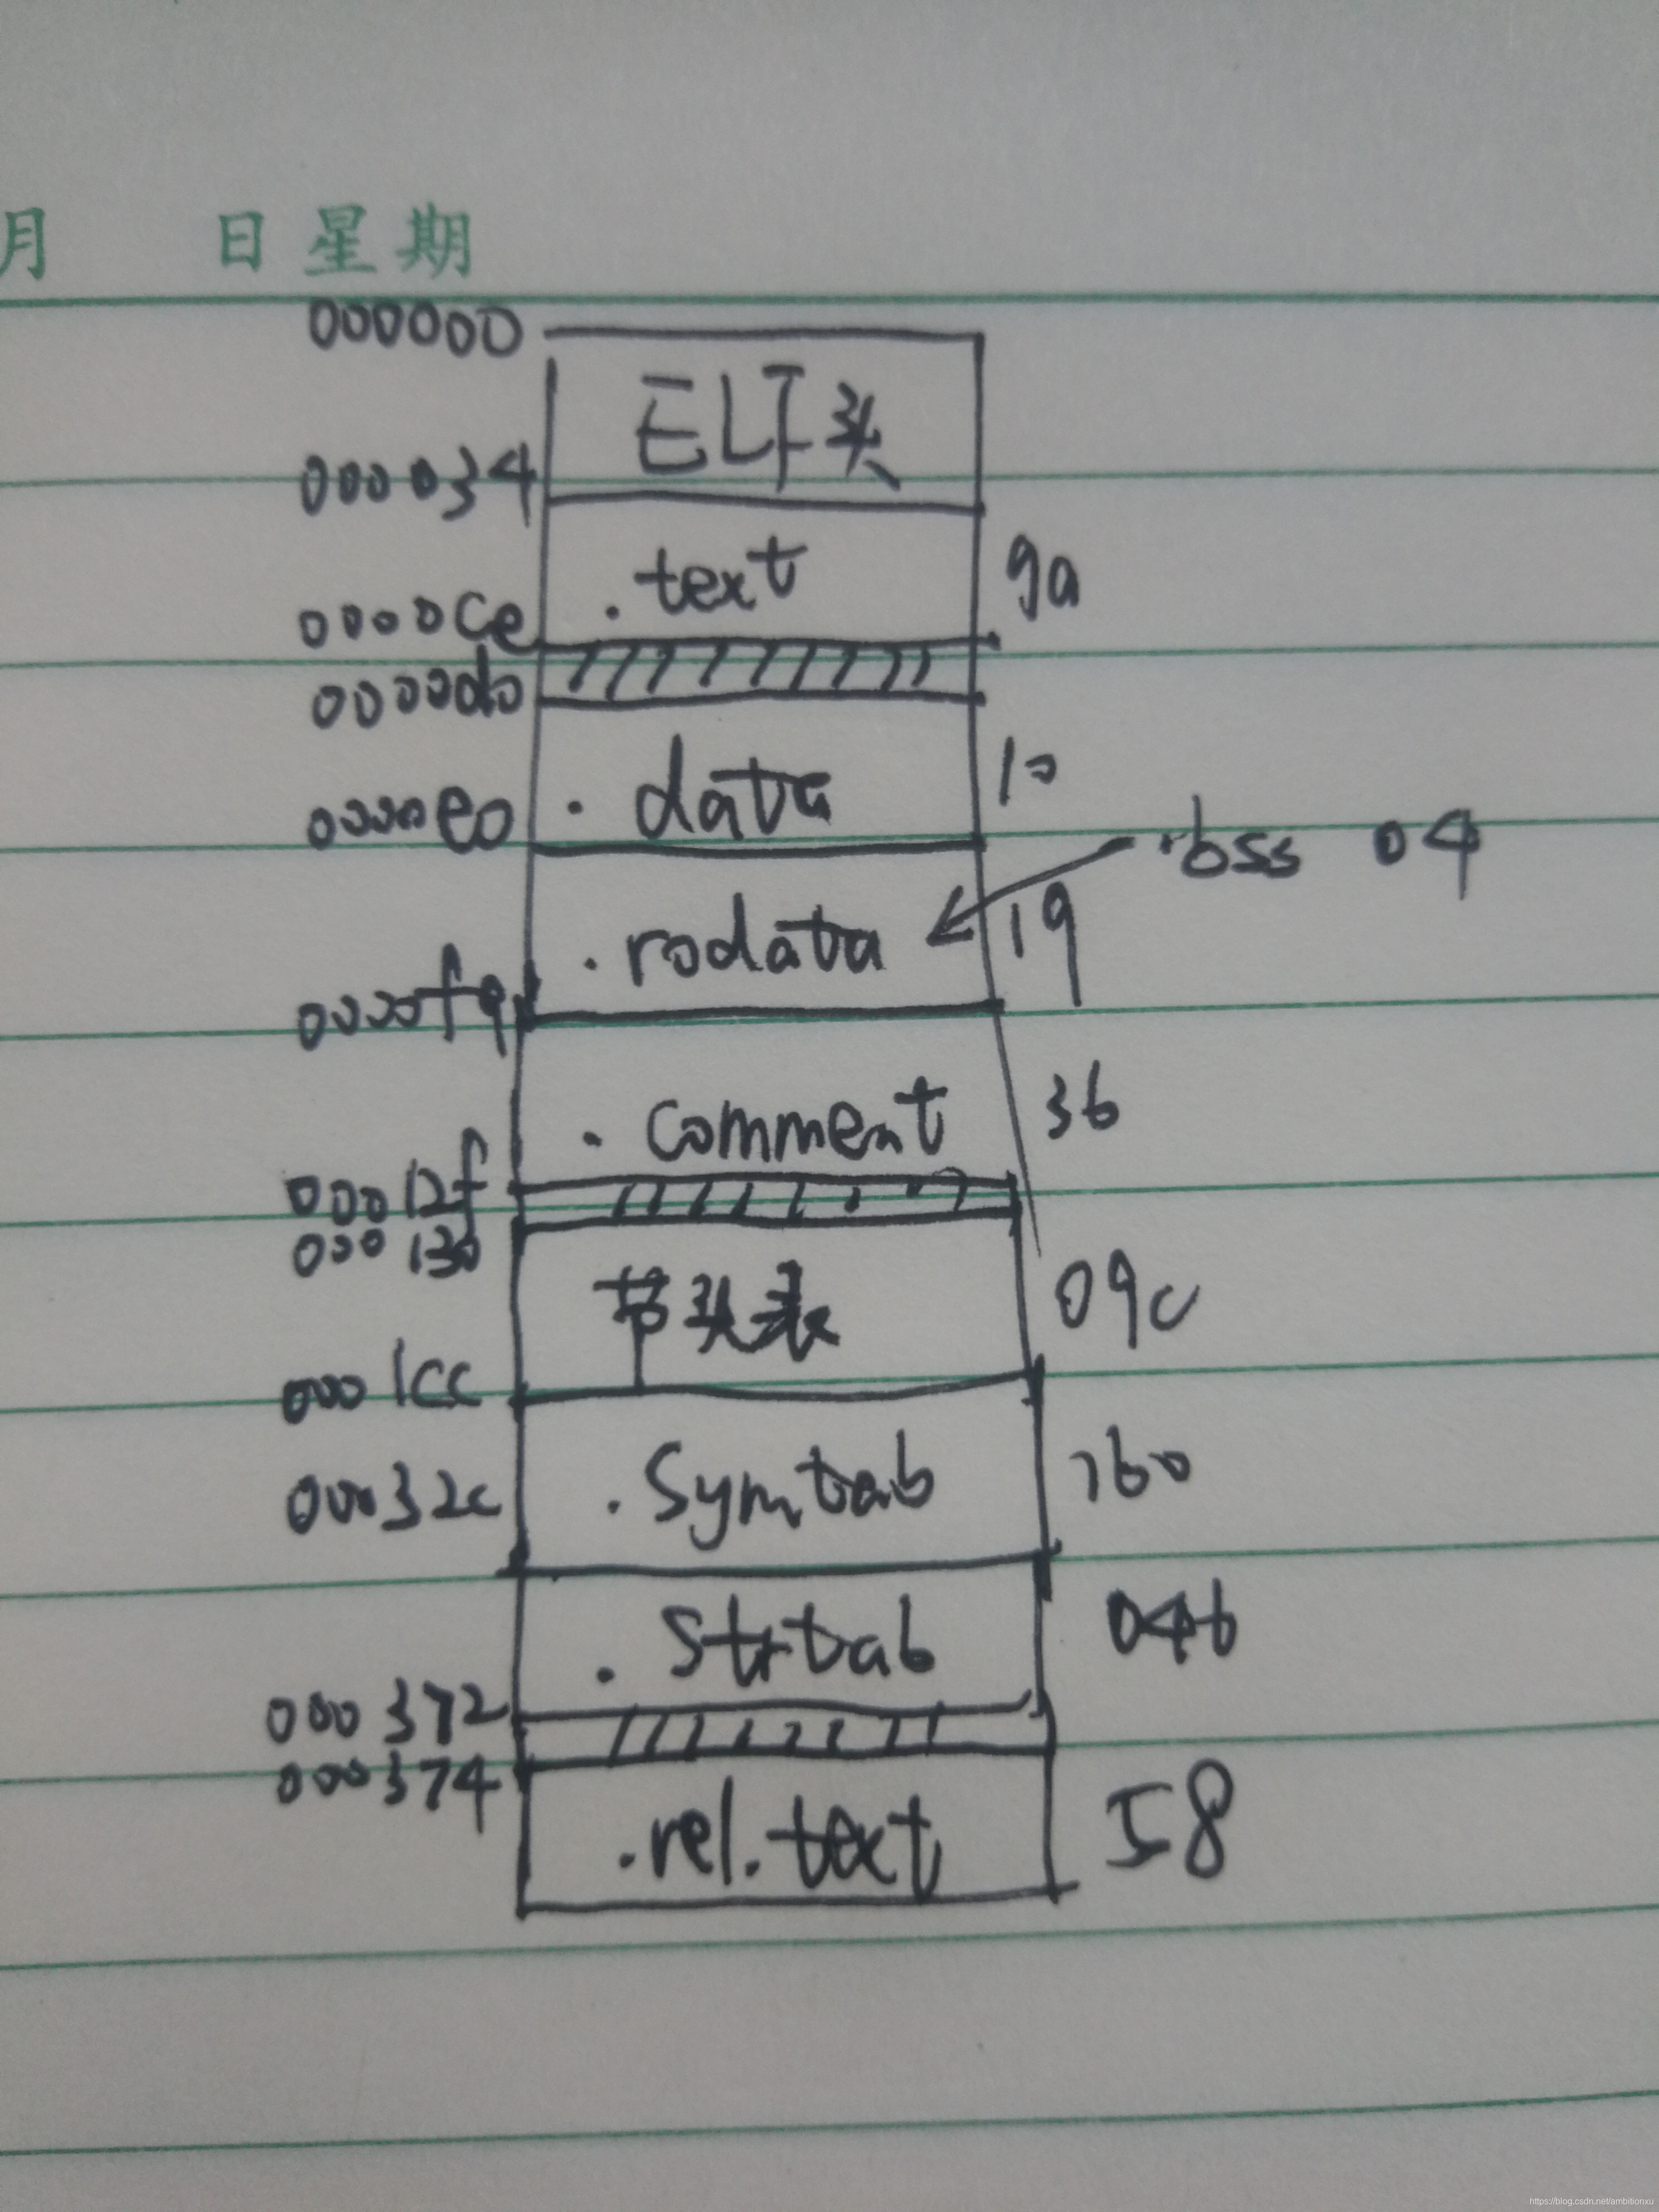 月 日 星 期
000000
ELF头
000034
.text 9a
0000ce
0000d0
.data 10
0000e0
.bss 04
.rodata 19
0000f9
.comment 36
00012f
000130
节头表 09c
0001cc
.Symtab 160
00032c
.Strtab 046
000372
000374
.rel.text 58
https://blog.csdn.net/ambitionxu